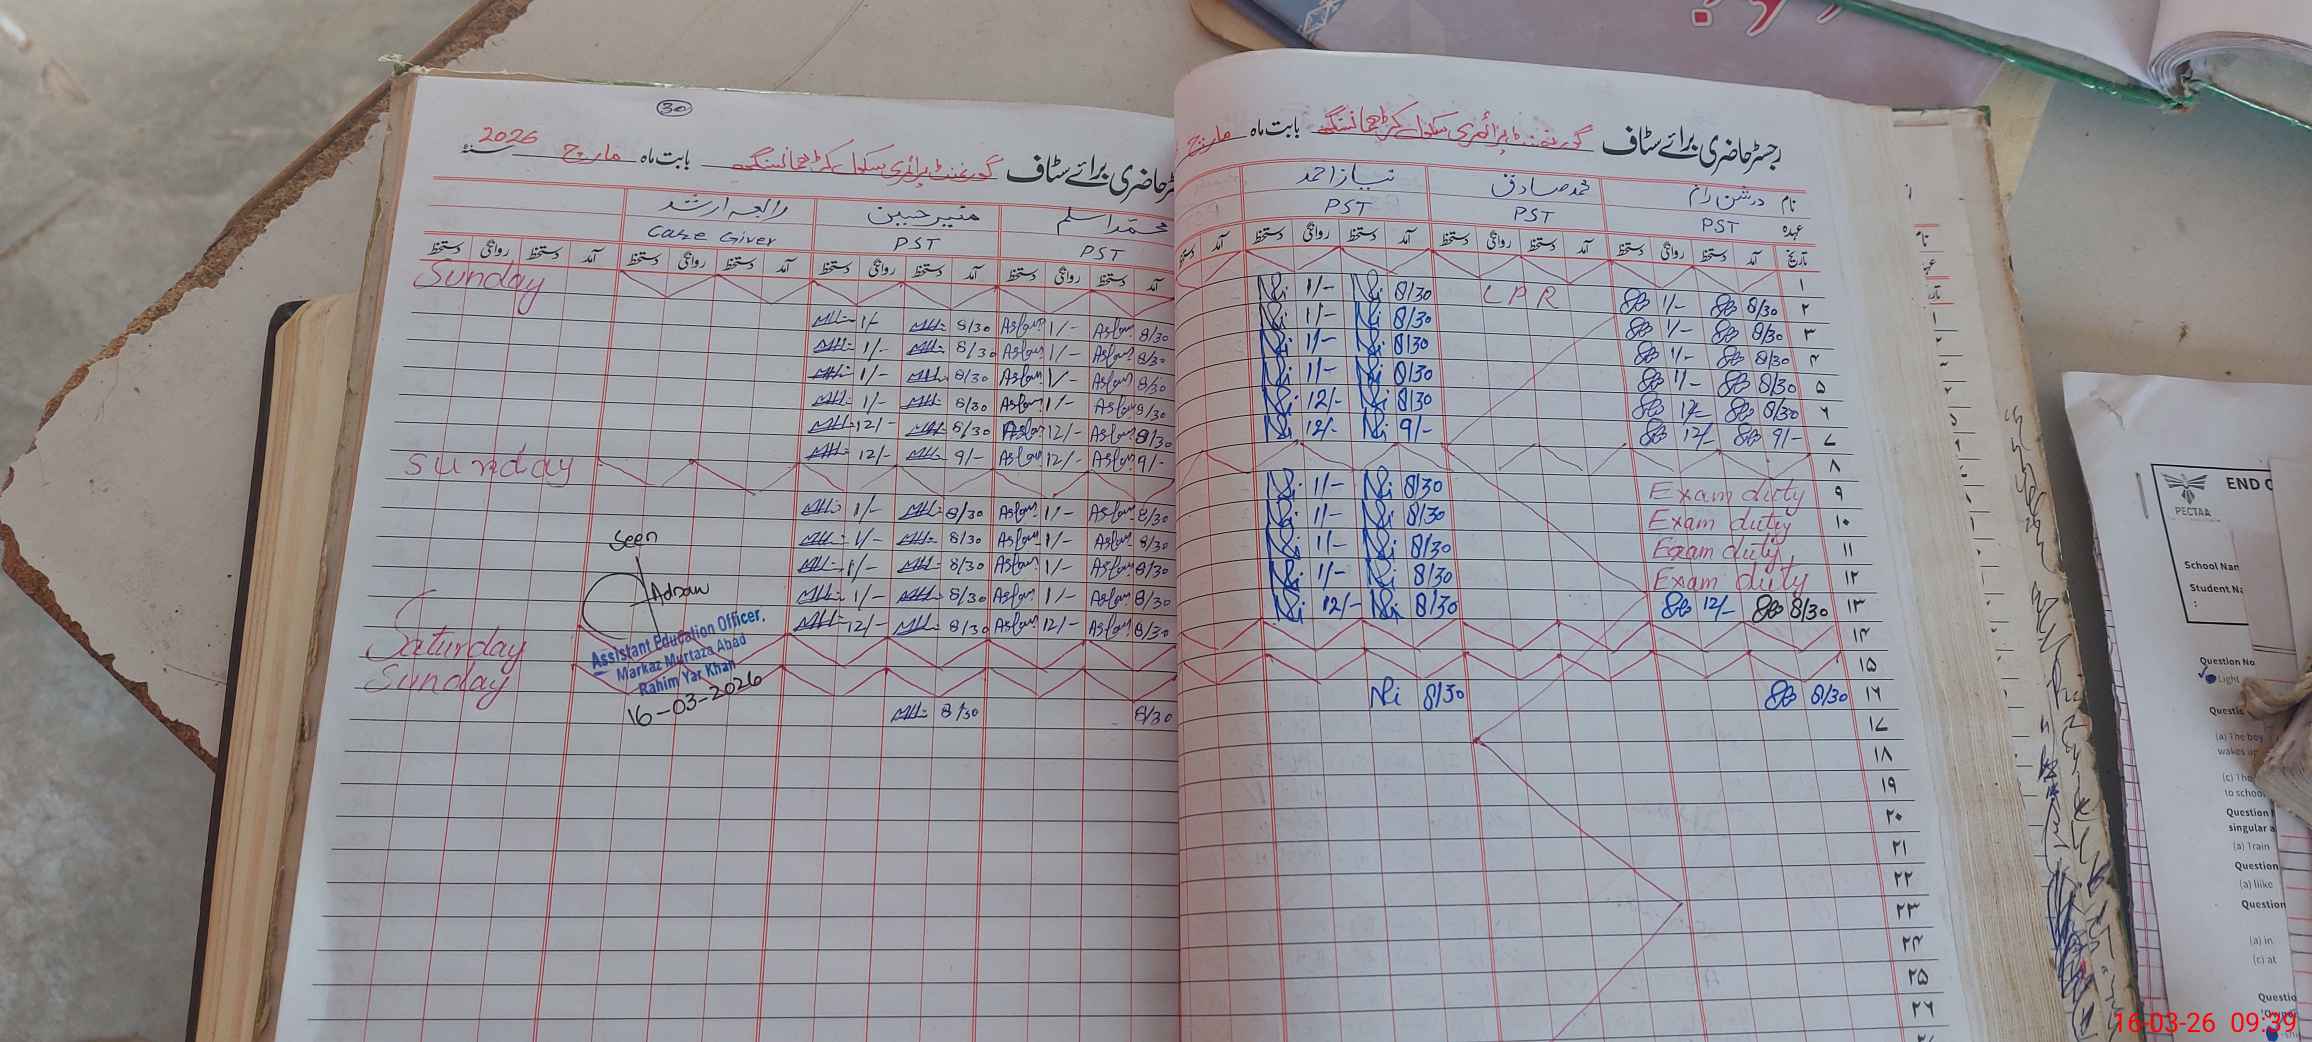 رجسٹر حاضری برائے سٹاف گورنمنٹ پرائمری سکول بابت ماہ مارچ
نام درشن رام محمد صادق نیاز احمد
عہدہ PST PST PST
تاریخ آمد دستخط روانگی دستخط آمد دستخط روانگی دستخط آمد دستخط روانگی دستخط آمد دستخط
۱
۲ 8/30 1/- LPR 8/30 1/-
۳ 8/30 1/- 8/30 1/-
۴ 8/30 1/- 8/30 1/-
۵ 8/30 1/- 8/30 1/-
۶ 8/30 12/- 8/30 12/-
۷ 9/- 12/- 9/- 12/-
۸
۹ Exam duty 8/30 1/-
۱۰ Exam duty 8/30 1/-
۱۱ Exam duty 8/30 1/-
۱۲ Exam duty 8/30 1/-
۱۳ 8/30 12/- 8/30 12/-
۱۴
۱۵
۱۶ 8/30 8/30
۱۷
۱۸
۱۹
۲۰
۲۱
۲۲
۲۳
۲۴
۲۵
۲۶
30
حاضری برائے سٹاف گورنمنٹ پرائمری سکول بابت ماہ مارچ 2026
محمد اسلم منیر حسین رابعہ ارشد
PST PST Care Giver
آمد دستخط روانگی دستخط آمد دستخط روانگی دستخط آمد دستخط روانگی دستخط آمد دستخط روانگی دستخط
Sunday
8/30 Aslam 1/- Aslam 8/30 1/-
8/30 Aslam 1/- Aslam 8/30 1/-
8/30 Aslam 1/- Aslam 8/30 1/-
8/30 Aslam 1/- Aslam 8/30 1/-
8/30 Aslam 12/- Aslam 8/30 12/-
9/- Aslam 12/- Aslam 9/- 12/-
Sunday
8/30 Aslam 1/- Aslam 8/30 1/-
8/30 Aslam 1/- Aslam 8/30 1/-
8/30 Aslam 1/- Aslam 8/30 1/-
8/30 Aslam 1/- Aslam 8/30 1/-
8/30 Aslam 12/- Aslam 8/30 12/-
Saturday
Sunday
8/30 8/30
Seen
Adnan
Assistant Education Officer,
Markaz Murtaza Abad
Rahim Yar Khan
16-03-2026
PECTAA
END
School Nam
Student Na
:
Question No
Light
(a) The boy
wakes up
to school
Question
singular a
(a) Train
Question
(a) like
Question
(a) in
(c) at
16-03-26 09:39